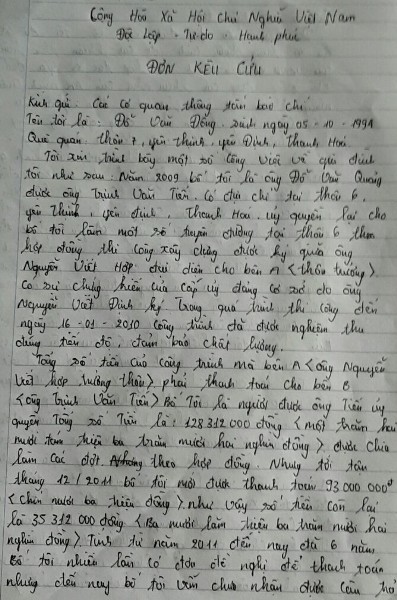 Cộng Hòa Xã Hội Chủ Nghĩa Việt Nam
Độc Lập - Tự do - Hạnh phúc
ĐƠN KÊU CỨU
Kính gửi. Các cơ quan thông tấn báo chí
Tên tôi là: Đỗ Văn Đồng. sinh ngày 05-10-1994
Quê quán thôn 7, yên thịnh, yên Định, Thanh Hoá
Tôi xin trình bày một số công việc về gia đình
tôi như sau. Năm 2009 bố tôi là ông Đỗ Văn Quang
được ông Trịnh Văn Tiến, có địa chỉ tại thôn 6,
yên thịnh, yên định, Thanh Hoá. uỷ quyền lại cho
bố tôi làm một số tuyến đường tại thôn 6 theo
hợp đồng thi công xây dựng được ký giữa ông
Nguyễn Viết Hợp đại diện cho bên A <thôn trưởng>
có sự chứng kiến của cấp uỷ đảng cơ sở do ông
Nguyễn Viết Định ký trong quá trình thi công đến
ngày 16-01-2010 công trình đã được nghiệm thu
đúng tiến độ, đảm bảo chất lượng.
Tổng số tiền của công trình mà bên A <ông Nguyễn
Viết Hợp trưởng thôn> phải thanh toán cho bên B
<ông Trịnh Văn Tiến> Bố Tôi là người được ông Tiến uỷ
quyền Tổng số Tiền là: 128 312 000 đồng <một trăm hai
mươi tám triệu ba trăm mười hai nghìn đồng>. được chia
làm các đợt theo hợp đồng. Nhưng tới tận
tháng 12/2011 bố tôi mới được thanh toán 93 000 000đ
<Chín mươi ba triệu đồng>. như vậy số tiền còn lại
là 35 312 000 đồng <Ba mươi lăm triệu ba trăm mười hai
nghìn đồng>. Tính từ năm 2011 đến nay đã 6 năm
Bố tôi nhiều lần có đơn đề nghị để thanh toán
nhưng đến nay bố tôi vẫn chưa nhận được câu trả